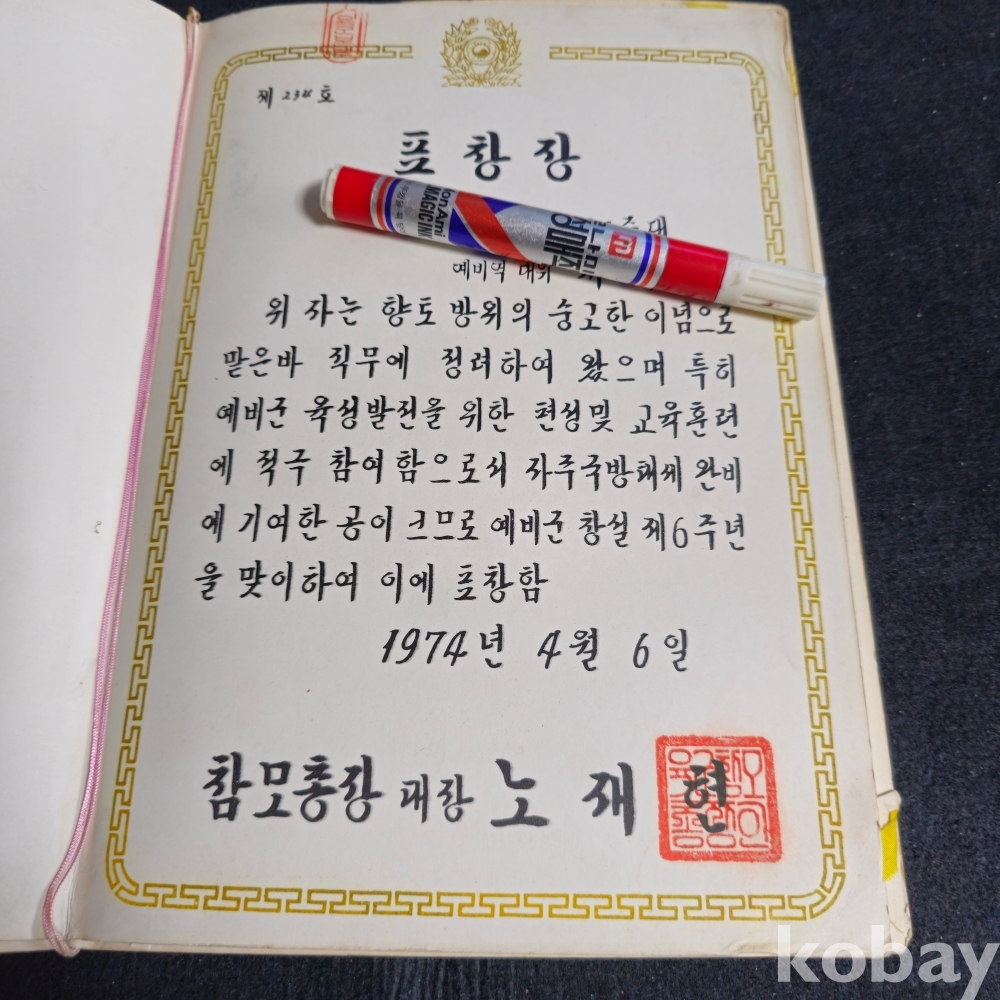 표창장
예비역 대위
위 자는 향토 방위의 숭고한 이념으로
맡은바 직무에 정려하여 왔으며 특히
예비군 육성발전을 위한 편성및 교육훈련
에 적극 참여함으로써 자주국방태세 완비
에 기여한 공이 크므로 예비군 창설 제6주년
을 맞이하여 이에 표창함
1974년 4월 6일
참모총장 대장 노재현
MonAmi
MAGIC INK
kobay